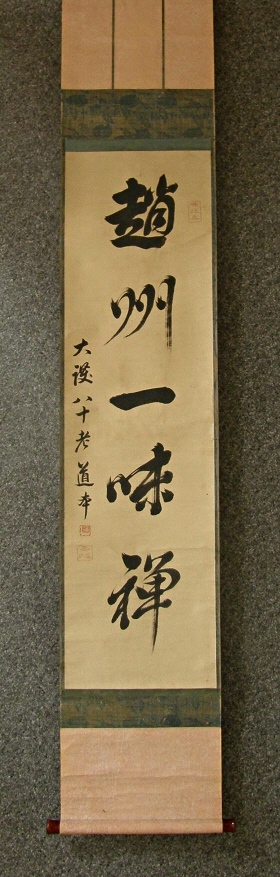 趙州一味禅
大護八十老道本